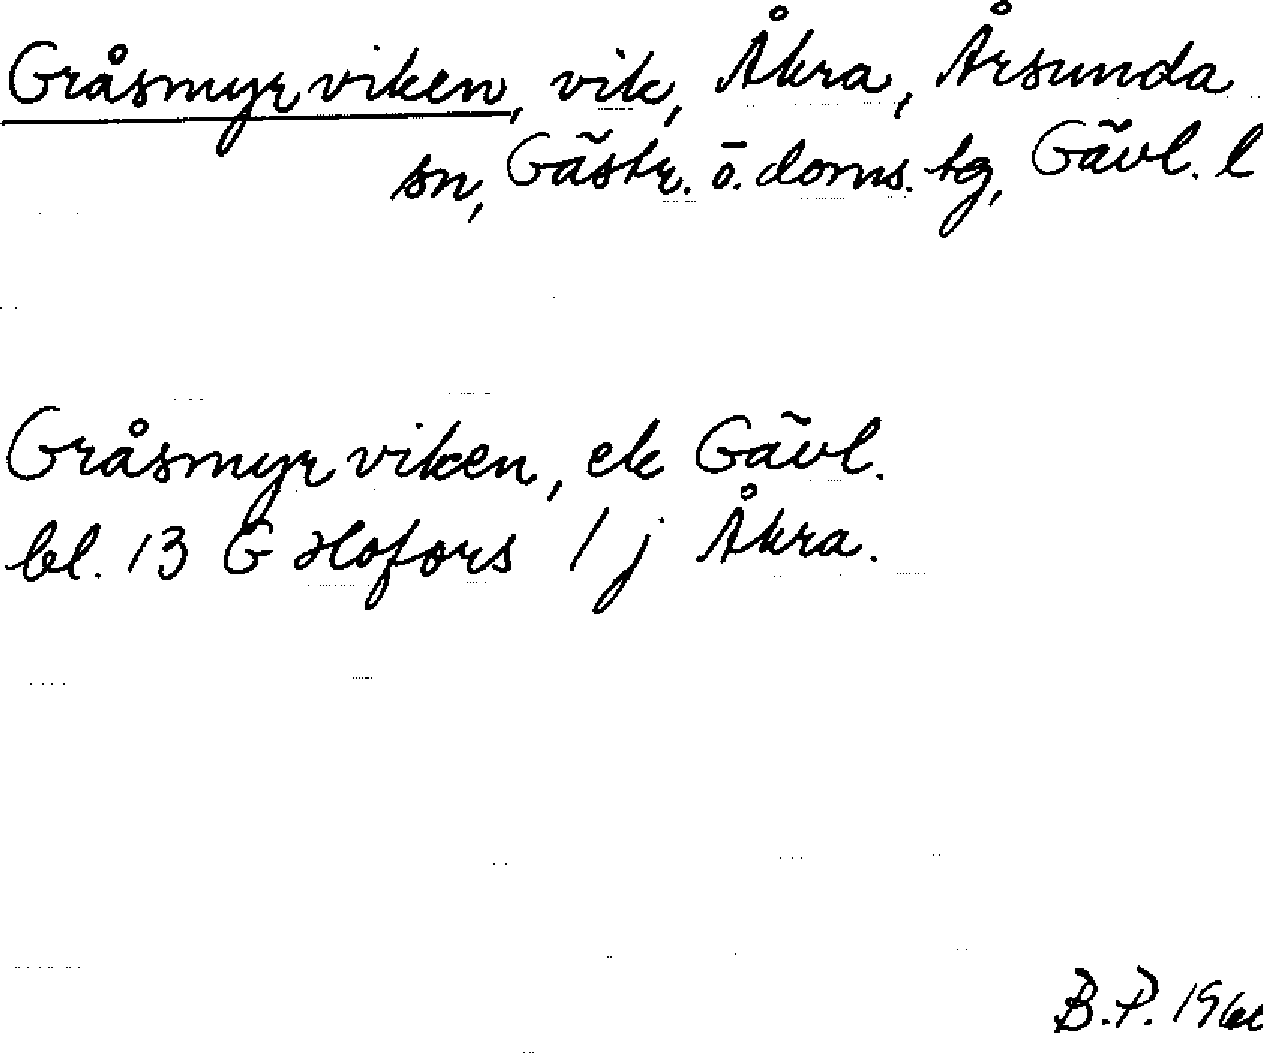 Gråsmyrviken, vik, Åkra, Årsunda
sn, Gästr. ö. doms. tg, Gävl. l
Gråsmyrviken, ek Gävl.
bl. 13 G Hofors 1 j Åkra.
B.P.